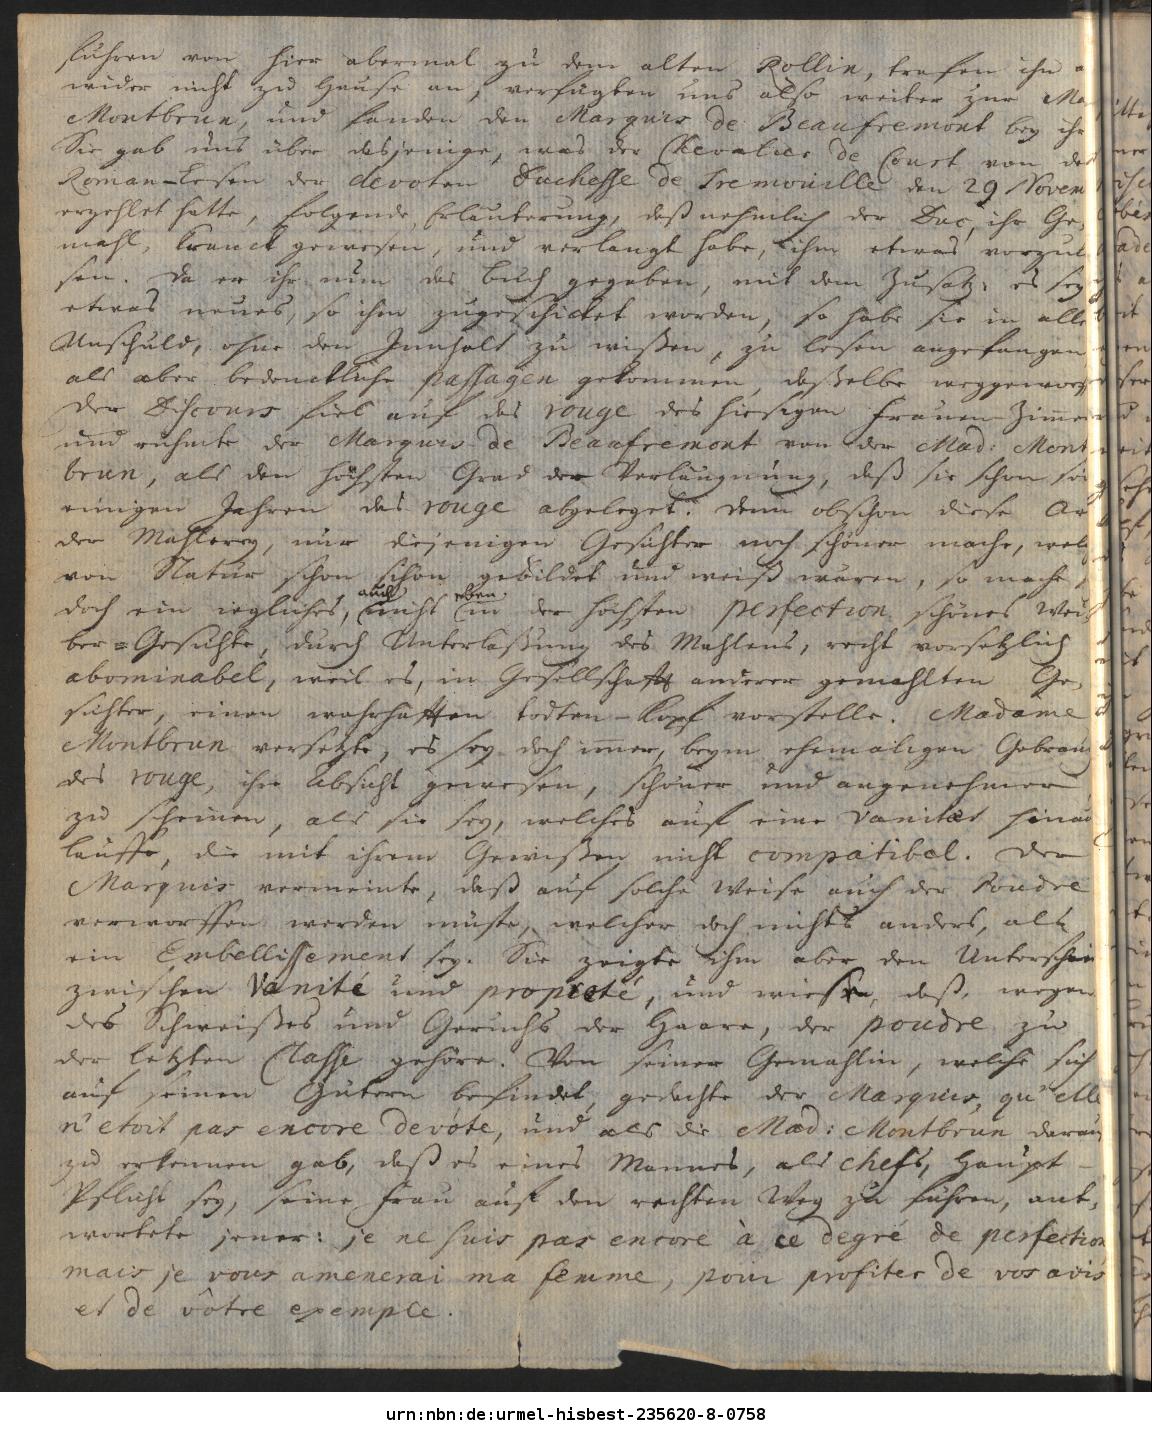 fuhren von hier abermal zu dem alten Rollin, trafen ihn a
wider nicht zu Hause an, verfügten uns also weiter zur Ma
Montbrun, und fanden den Marquis de Beaufremont bey ihr
Sie gab uns über dasjenige, was der Chevalier de Court von des
Roman-Lesen der devoten Duchesse de Tremouille den 29 Novem
erzehlet hatte, folgende Erläuterung, daß nehmlich der Duc, ihr Ge,
mahl, kranck gewesen, und verlangt habe, ihm etwas vorzule
sen. Da er ihr nun das Buch gegeben, mit dem Zusatz: es sey
etwas neues, so ihm zugeschicket worden, so habe sie in aller
Unschuld, ohne den Innhalt zu wißen, zu lesen angefangen
als aber bedenckliche passagen gekommen, daßelbe weggeworff
Der Discours fiel auf das rouge des hiesigen Frauen-Zimmers
und rühmte der Marquis de Beaufremont von der Mad: Mont
brun, als den höchsten Grad der Verläugnung, daß sie schon sei
einigen Jahren das rouge abgeleget: denn obschon diese Ar
der Mahlerey, nur diejenigen Gesichter noch schöner mache, welc
von Natur schon schön gebildet und weiß wären, so mache
doch ein iegliches, auch nicht eben in der höchsten perfection schönes Wei
ber=Gesichte, durch Unterlaßung des Mahlens, recht vorsetzlich
abominabel, weil es, in Gesellschafft anderer gemahlten Ge,
sichter, einen wahrhafften todten-Kopf vorstelle. Madame
Montbrun versetzte, es sey doch immer, beym ehemaligen Gebrauch
des rouge, ihre Absicht gewesen, schöner und angenehmer
zu scheinen, als sie sey, welches auf eine Vanität hinaus
lauffe, die mit ihrem Gewißen nicht compatibel. Der
Marquis vermeinte, daß auf solche Weise auch der Poudre
verworffen werden müste, welcher doch nichts anders, als
ein Embellissement sey. Sie zeigte ihm aber den Unterschei
zwischen Vanité und propreté, und wiese, daß, wegen
des Schweißes und Geruchs der Haare, der poudre zu
der letzten Classe gehöre. Von seiner Gemahlin, welche sich
auf seinen Gütern befindet, gedachte der Marquis, qu'elle
n'etoit pas encore devóte, und als die Mad: Montbrun darauf
zu erkennen gab, daß es eines Mannes, als chefs, Haupt-
Pflicht sey, seine Frau auf den rechten Weg zu führen, ant,
wortete jener: je ne suis pas encore à ce degré de perfection
mais je vous amenerai ma femme, pour profiter de vos avis
et de vôtre exemple.
urn:nbn:de:urmel-hisbest-235620-8-0758